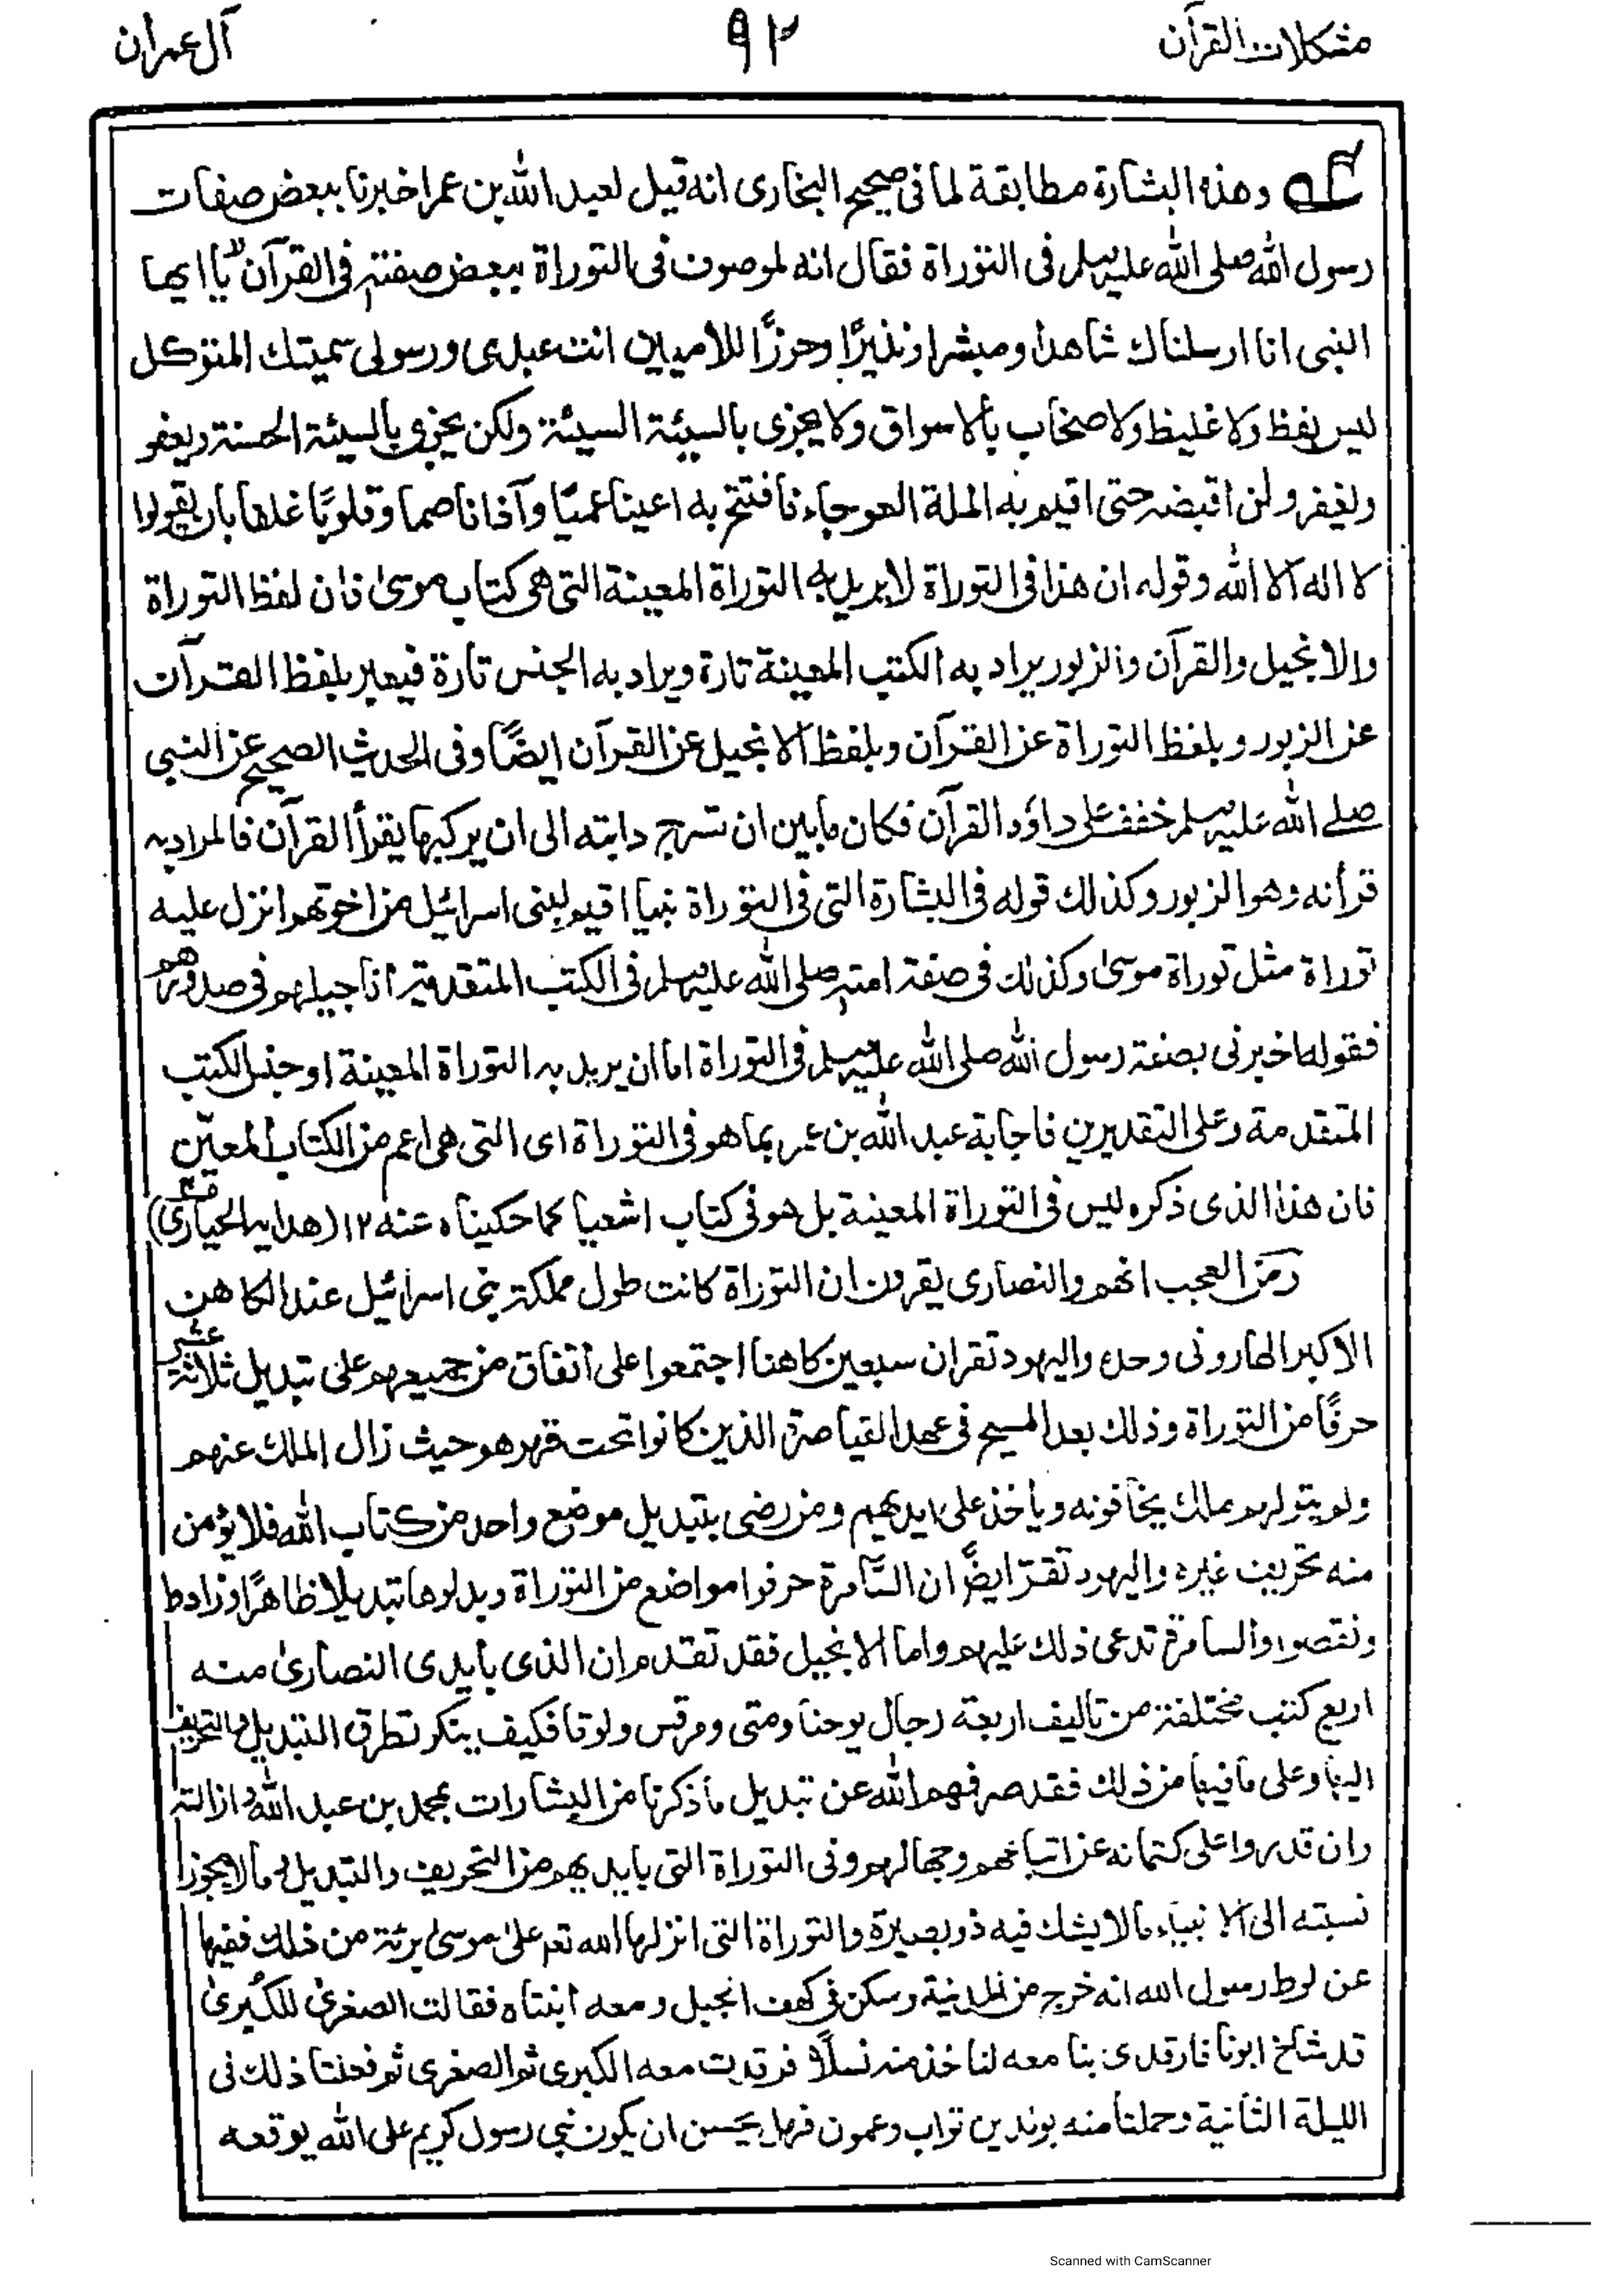 مشكلات القرآن
٩٢
آل عمران
وهذه البشارة مطابقة لما فى صحيح البخارى انه قيل لعبد الله بن عمر اخبرنا ببعض صفات
رسول الله صلى الله عليه وسلم فى التوراة فقال انه لموصوف فى التوراة ببعض صفته فى القرآن يا ايها
النبى انا ارسلناك شاهدا ومبشرا ونذيرًا وحرزًا للاميين انت عبدى ورسولى سميتك المتوكل
ليس بفظ ولا غليظ ولا صخاب بالاسواق ولا يجزى بالسيئة السيئة ولكن يجزى بالسيئة الحسنة ويعفو
ولغفر ولن اقبضه حتى اقيم به الملة العوجاء فافتح به اعينا عميًا وآذانا صما وقلوبًا غلفا بان يقولوا
لا اله الا الله وقوله ان هذا فى التوراة لا يريد به التوراة المعينة التى هى كتاب موسىٰ فان لفظ التوراة
والانجيل والقرآن والزبور يراد به الكتب المعينة تارة ويراد به الجنس تارة فيعبر بلفظ القرآن
عن الزبور و بلفظ التوراة عن القرآن وبلفظ الانجيل عن القرآن ايضًا وفى الحديث الصحيح عن النبى
صلے الله عليه وسلم خفف على داؤد القرآن فكان ما بين ان تسرج دابته الى ان يركبها يقرأ القرآن فالمراد به
قرأنه وهو الزبور وكذلك قوله فى البشارة التى فى التوراة نبيا اقيم لبنى اسرائيل من اخوتهم انزل عليه
توراة مثل توراة موسىٰ وكذلك فى صفة امته صلى الله عليه وسلم فى الكتب المتقدمة اناجيلهم فى صدورهم
فقوله اخبرنى بصفة رسول الله صلى الله عليه وسلم فى التوراة اما ان يريد به التوراة المعينة او جنس الكتب
المتقدمة وعلى التقديرين فاجابة عبد الله بن عمر بما هو فى التوراة اى التى هى اعم من الكتاب المعيّن
فان هذا الذى ذكره ليس فى التوراة المعينة بل هو فى كتاب اشعيا كما حكيناه عنه ١٢ (هداية الحيارىٰ)
ومن العجب انهم والنصارى يقرون ان التوراة كانت طول مملكة بنى اسرائيل عند الكاهن
الاكبر الهارونى وحده واليهود تقر ان سبعين كاهنا اجتمعوا على اتفاق من جميعهم على تبديل ثلاثة عشر
حرفًا من التوراة وذلك بعد المسيح فى عهد القياصرة الذين كانوا تحت قهرهم حيث زال الملك عنهم
ولم يبق لهم ملك يخافونه وياخذ على ايديهم ومن رضى بتبديل موضع واحد من كتاب الله فلا يؤمن
منه تحريف غيره واليهود تقرّ ايضًا ان السّامرة حرفوا مواضع من التوراة وبدلوها تبديلا ظاهرًا وزادوا
ونقصوا والسامرة تدعى ذلك عليهم واما الانجيل فقد تقدم ان الذى بايدى النصارىٰ منه
اربع كتب مختلفة من تاليف اربعة رجال يوحنا ومتى ومرقس ولوقا فكيف ينكر تطرق التبديل والتحريف
اليها وعلى ما فيها من ذلك فقد صرفهم الله عن تبديل ما ذكرنا من البشارات بمحمد بن عبد الله وازالته
وان قدروا على كتمانه عن اتباعهم وجهالهم وفى التوراة التى بايديهم من التحريف والتبديل وما لا يجوز
نسبته الى الانبياء مالا يشك فيه ذو بصيرة والتوراة التى انزلها الله تعم على موسىٰ برئة من ذلك ففيها
عن لوط رسول الله انه خرج من المدينة وسكن فى كهف الجبل ومعه ابنتاه فقالت الصغرىٰ للكبرىٰ
قد شاخ ابونا فارقدى بنا معه لنا خذ منه نسلًا فرقدت معه الكبرى ثم الصغرى ثم فعلتا ذلك فى
الليلة الثانية وحملتا منه بولدين مواب وعمون فهل يحسن ان يكون نبى رسول كريم على الله يوقعه
Scanned with CamScanner